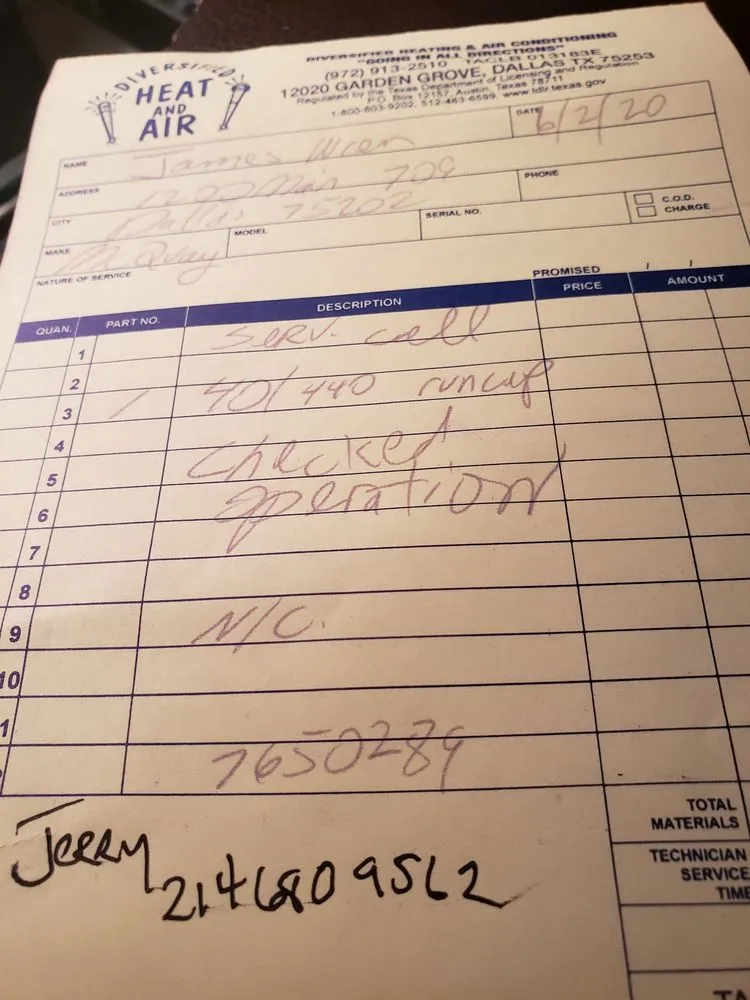 DIVERSIFIED
HEAT
AND
AIR
DIVERSIFIED HEATING & AIR CONDITIONING
"GOING IN ALL DIRECTIONS"
(972) 913-2510 TACLB 013183E
12020 GARDEN GROVE, DALLAS TX 75253
Regulated by the Texas Department of Licensing and Regulation
P.O. Box 12157, Austin, Texas 78711
1-800-803-9202, 512-463-6599, www.tdlr.texas.gov
DATE 6/2/20
NAME James Wren
ADDRESS 1200 Main 709
PHONE
CITY Dallas 75202
SERIAL NO.
C.O.D.
CHARGE
MAKE McQuay
MODEL
NATURE OF SERVICE
PROMISED / /
QUAN. PART NO. DESCRIPTION PRICE AMOUNT
1 serv. call
2
3 / 40/440 runcap
4
5 checked
6 operation
7
8
9 N/C.
10
1
7650289
Jerry
2146809562
TOTAL
MATERIALS
TECHNICIAN
SERVICE
TIME